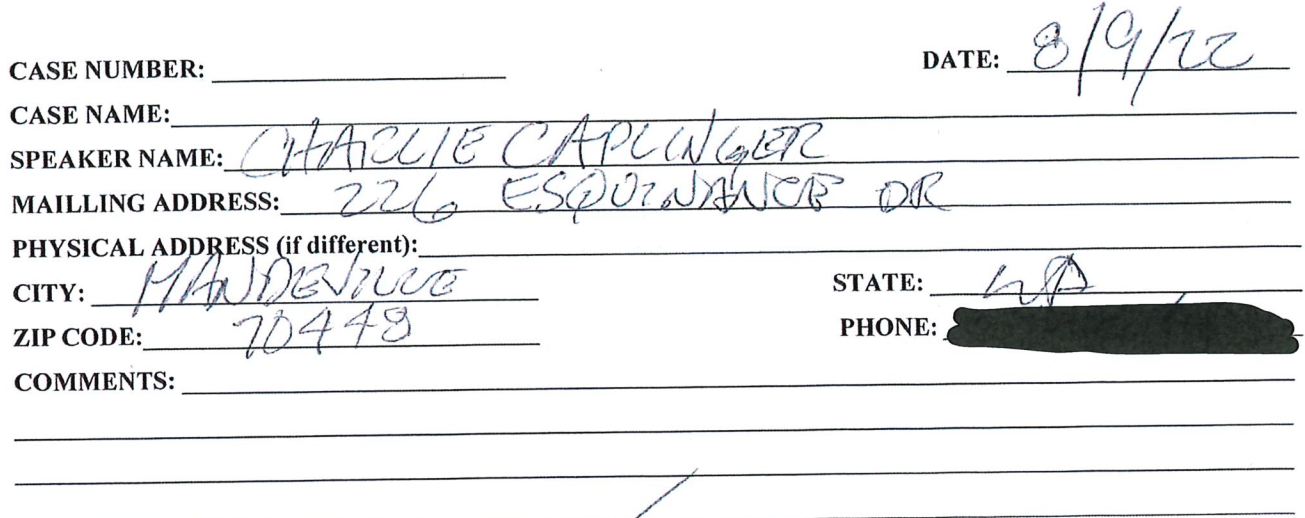 CASE NUMBER: DATE: 8/9/22
CASE NAME:
SPEAKER NAME: CHARLIE CAPLINGER
MAILLING ADDRESS: 226 ESQUINANCE DR
PHYSICAL ADDRESS (if different):
CITY: MANDEVILLE STATE: LA
ZIP CODE: 70448 PHONE:
COMMENTS: